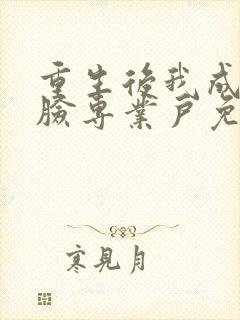 重生後我成
臉專業戶免
寒見月